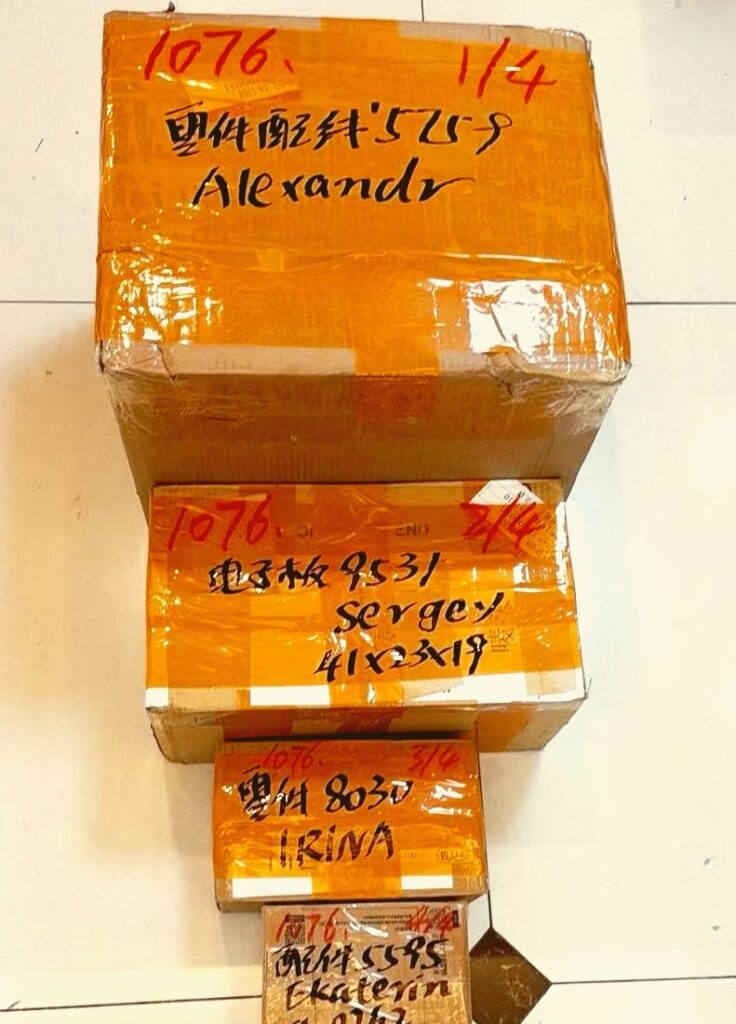 1076. 1/4
零件配件 5759
Alexandr
1076. 2/4
END
电子板 9531
Sergey
41x23x19
1076. 3/4
零件 8030
IRINA
1076. 4/4
配件 5595
Ekaterin
a 0242